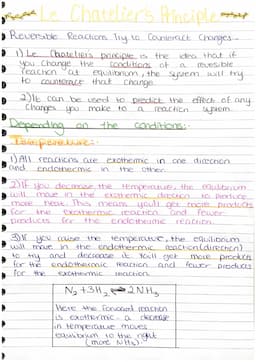 Le Chatelier's Principle
Reversible Reactions Try to Counteract Changes:-
1) Le Chatelier's principle is the idea that if
you change the conditions of a reversible
reaction at equilibrium, the system will try
to counteract that change.
2) It can be used to predict the effect of any
changes you make to a reaction system.
Depending on the conditions:-
Temperature:-
1) All reactions are exothermic in one direction
and endothermic in the other.
2) If you decrease the temperature, the equilibrium
will move in the exothermic direction to produce
more heat. This means you'll get more products
for the exothermic reaction and fewer
products for the endothermic reaction.
3) If you raise the temperature, the equilibrium
will move in the endothermic reaction (direction)
to try and decrease it. You'll get more products
for the endothermic reaction and fewer products
for the exothermic reaction.
N₂ + 3H₂ ⇌ 2NH₃
Here the forward reaction
is exothermic - a decrease
in temperature moves
equilibrium to the right
(more NH₃).